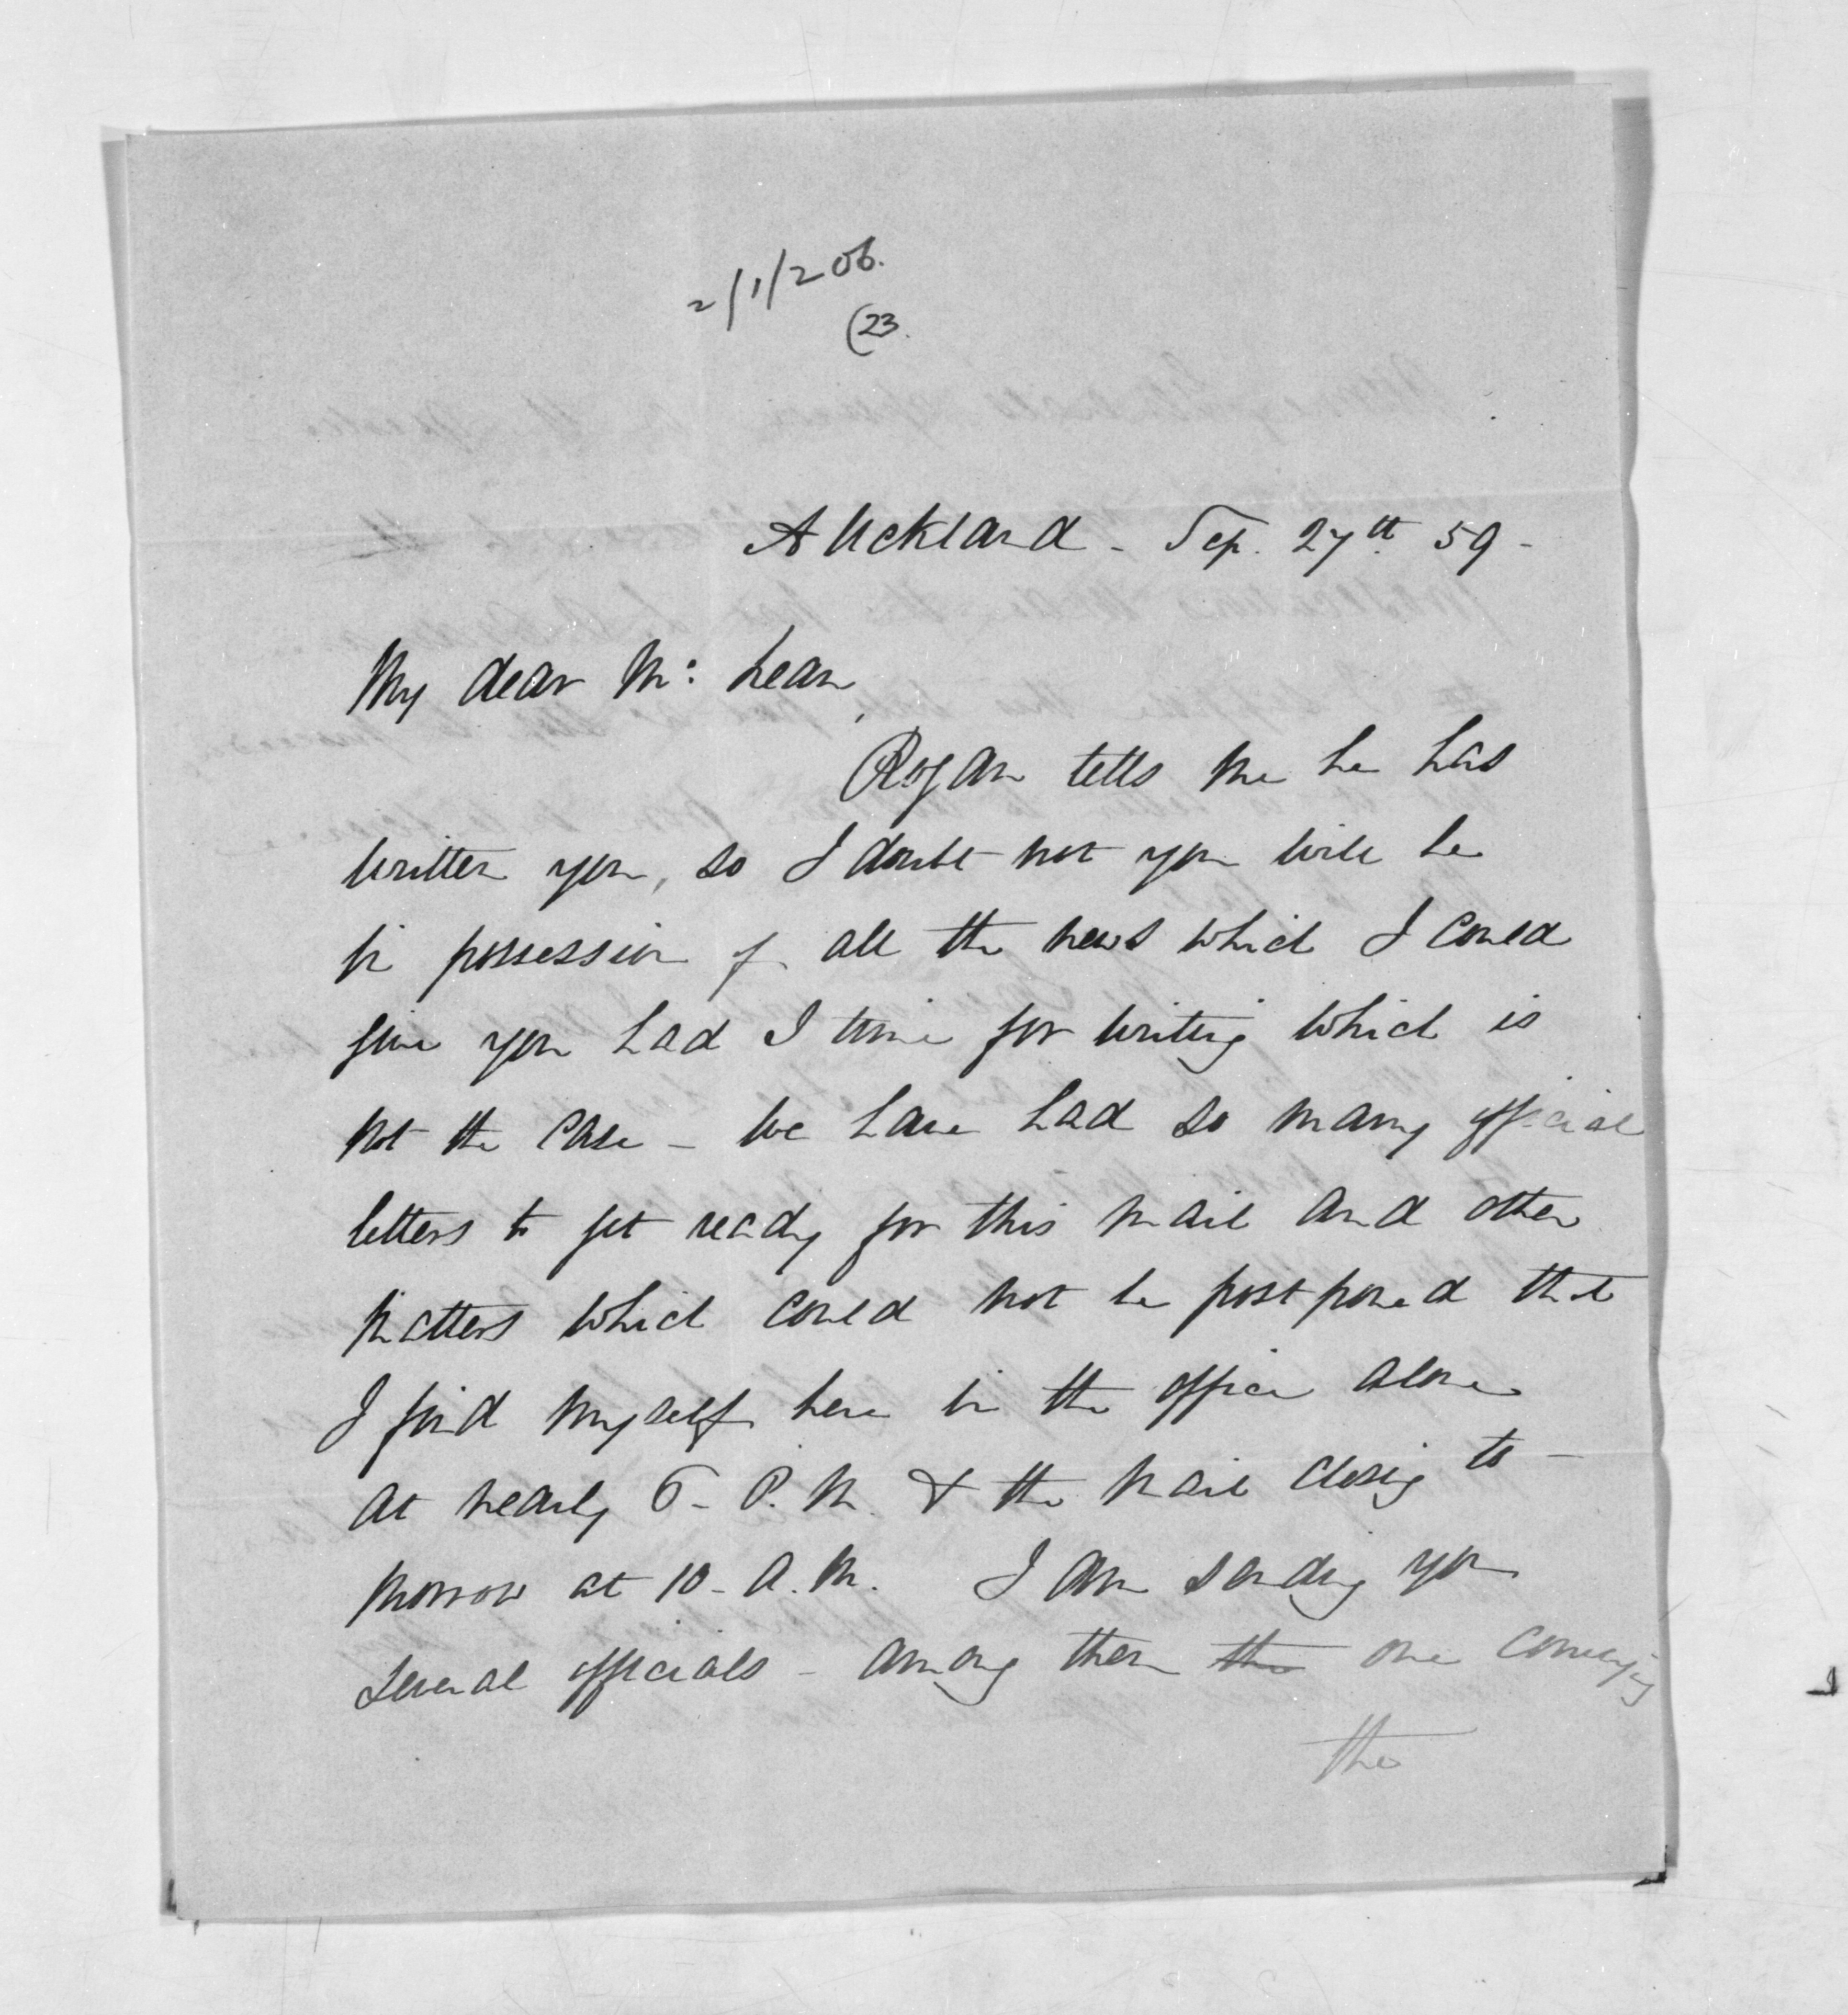 2/1/206.
(23.
Auckland - Sep. 27th 59 -
My dear Mc: Lean,
Rogan tells me he has
written you, so I doubt not you will be
in possession of all the news which I could
give you had I time for writing which is
not the case - we have had so many official
letters to get ready for this mail and other
matters which could not be postponed that
I find myself here in the office alone
at nearly 6 - P.M. & the mail closing to-
morrow at 10 - A.M. I am sending you
several officials - among them the one conveying
the